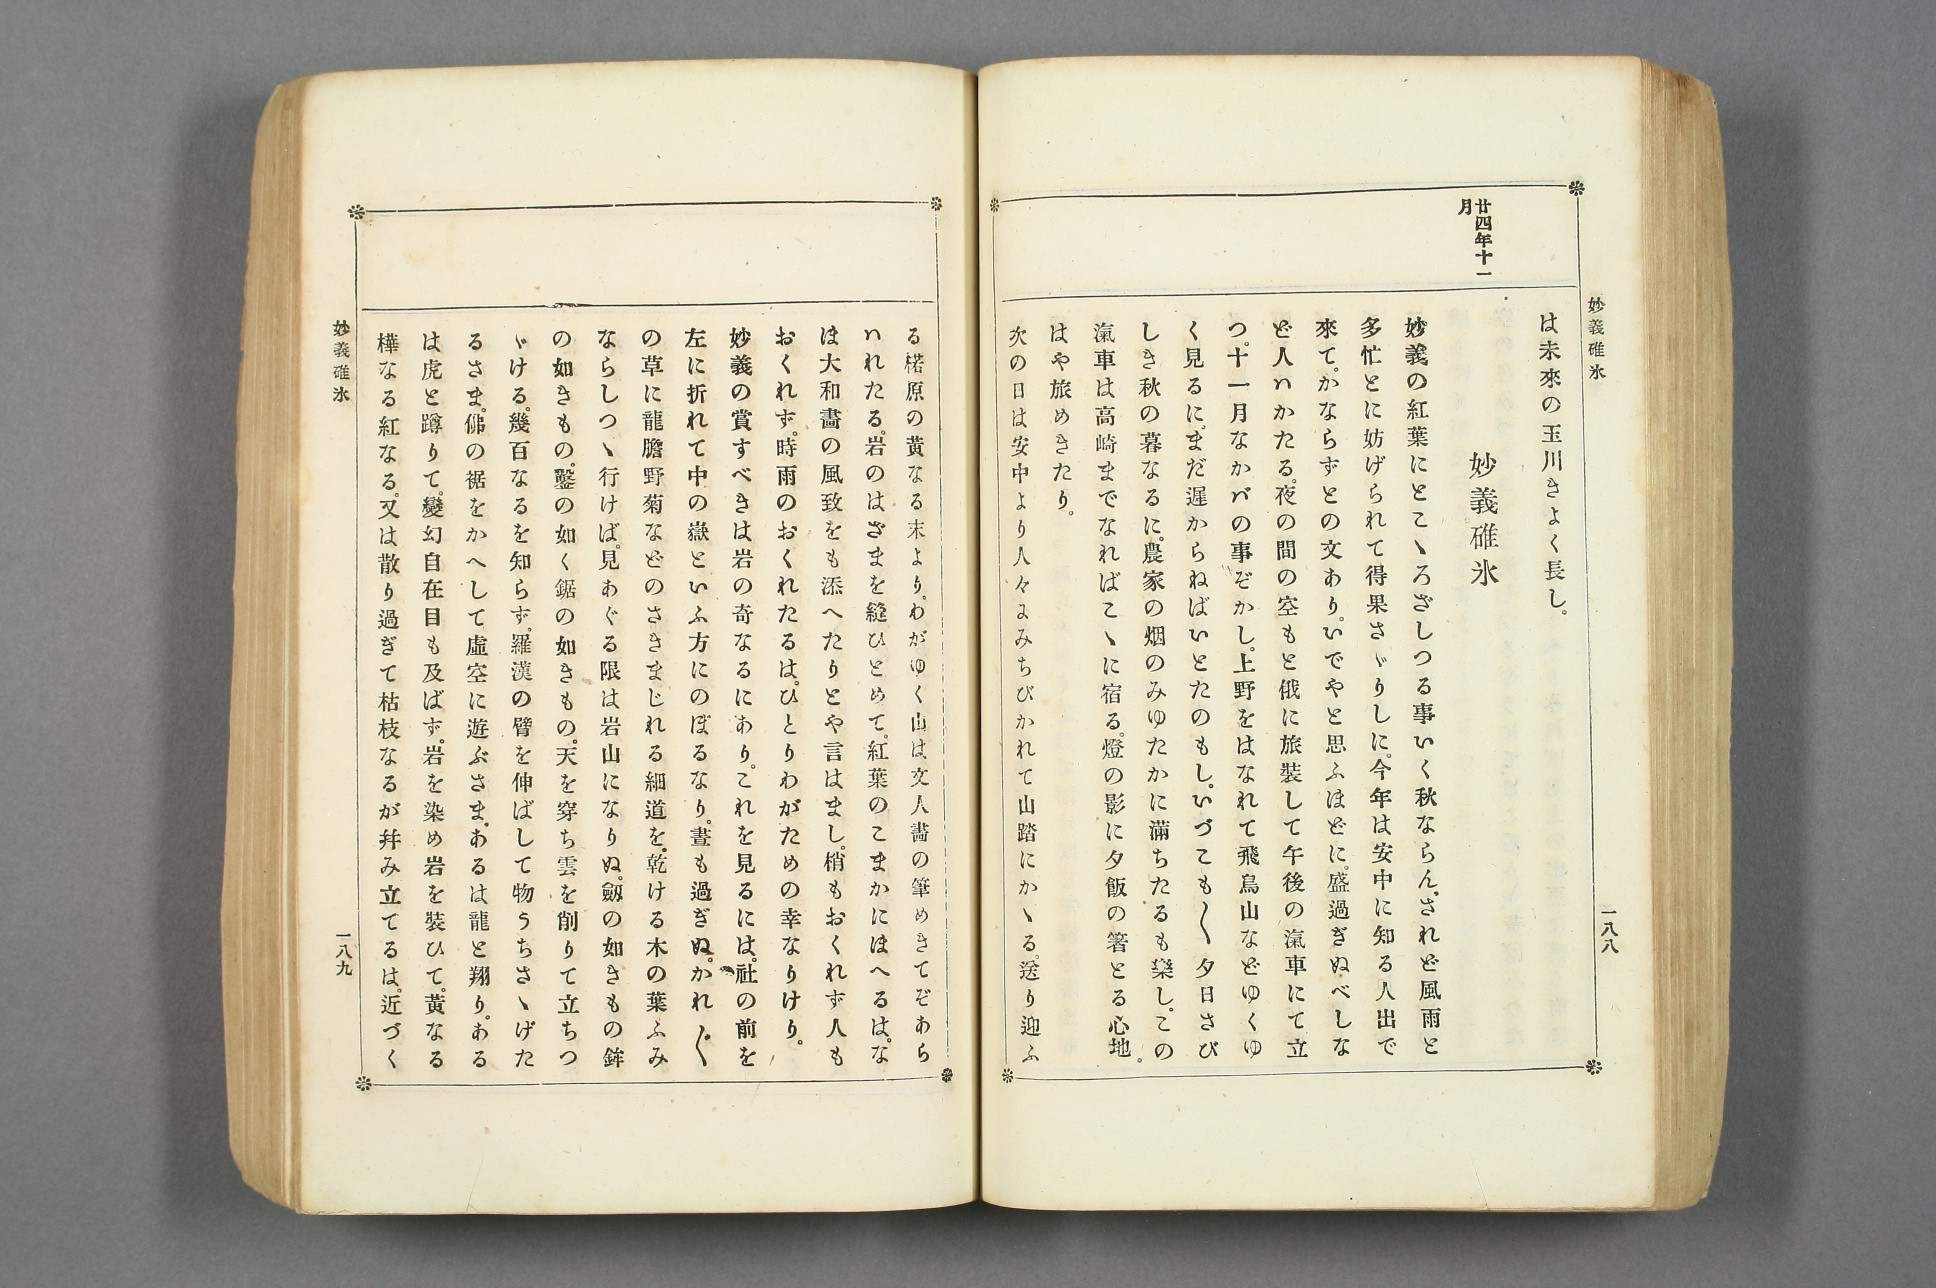 妙義碓氷
一八八
廿四年十一
月
は未來の玉川きよく長し。
妙義碓氷
妙義の紅葉にとこゝろざしつる事いく秋ならん、されど風雨と
多忙とに妨げられて得果さゞりしに。今年は安中に知る人出で
來て。かならずとの文あり。いでやと思ふほどに。盛過ぎぬべしな
ど人いかたる。夜の間の空もと俄に旅裝して午後の滊車にて立
つ。十一月なかバの事ぞかし。上野をはなれて飛鳥山などゆくゆ
く見るに。まだ遲からねばいとたのもし。いづこも〳〵夕日さび
しき秋の暮なるに。農家の烟のみゆたかに滿ちたるも樂し。この
滊車は高崎までなればこゝに宿る。燈の影に夕飯の箸とる心地。
はや旅めきたり。
次の日は安中より人々にみちびかれて山踏にかゝる。送り迎ふ
る楉原の黃なる末より。わがゆく山は文人畵の筆めきてぞあら
ハれたる。岩のはざまを縫ひとめて。紅葉のこまかにほへるは。な
は大和畵の風致をも添へたりとや言はまし。梢もおくれず人も
おくれず。時雨のおくれたるは。ひとりわがための幸なりけり。
妙義の賞すべきは岩の奇なるにあり。これを見るには。社の前を
左に折れて中の嶽といふ方にのぼるなり。晝も過ぎぬ。かれ〴〵
の草に龍膽野菊などのさきまじれる細道を。乾ける木の葉ふみ
ならしつゝ行けば。見あぐる限は岩山になりぬ。劔の如きもの鉾
の如きもの。鑿の如く鋸の如きもの。天を穿ち雲を削りて立ちつ
ゞける。幾百なるを知らず。羅漢の臂を伸ばして物うちさゝげた
るさま。佛の裾をかへして虛空に遊ぶさま。あるは龍と翔り。ある
は虎と蹲りて。變幻自在目も及ばず。岩を染め岩を裝ひて。黃なる
樺なる紅なる。又は散り過ぎて枯枝なるが幷み立てるは。近づく
妙義碓氷
一八九